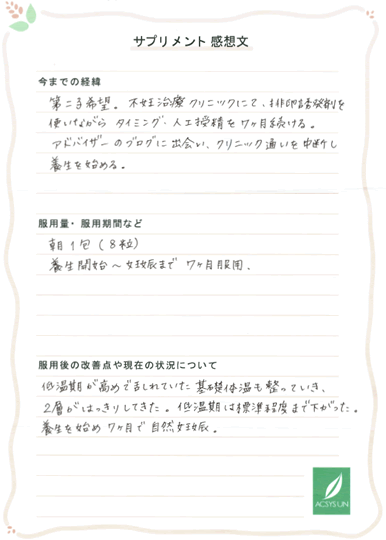 サプリメント 感想文
今までの経緯
第二子希望。不妊治療クリニックにて、排卵誘発剤を
使いながら タイミング・人工授精を7ヶ月続ける。
アドバイザーのブログに出会い、クリニック通いを中断し
養生を始める。
服用量・服用期間など
朝1包(8粒)
養生開始〜妊娠まで 7ヶ月服用、
服用後の改善点や現在の状況について
低温期が高めで乱れていた基礎体温も整っていき、
2層がはっきりしてきた。低温期は標準程度まで下がった。
養生を始め7ヶ月で自然妊娠。
ACSYS UN